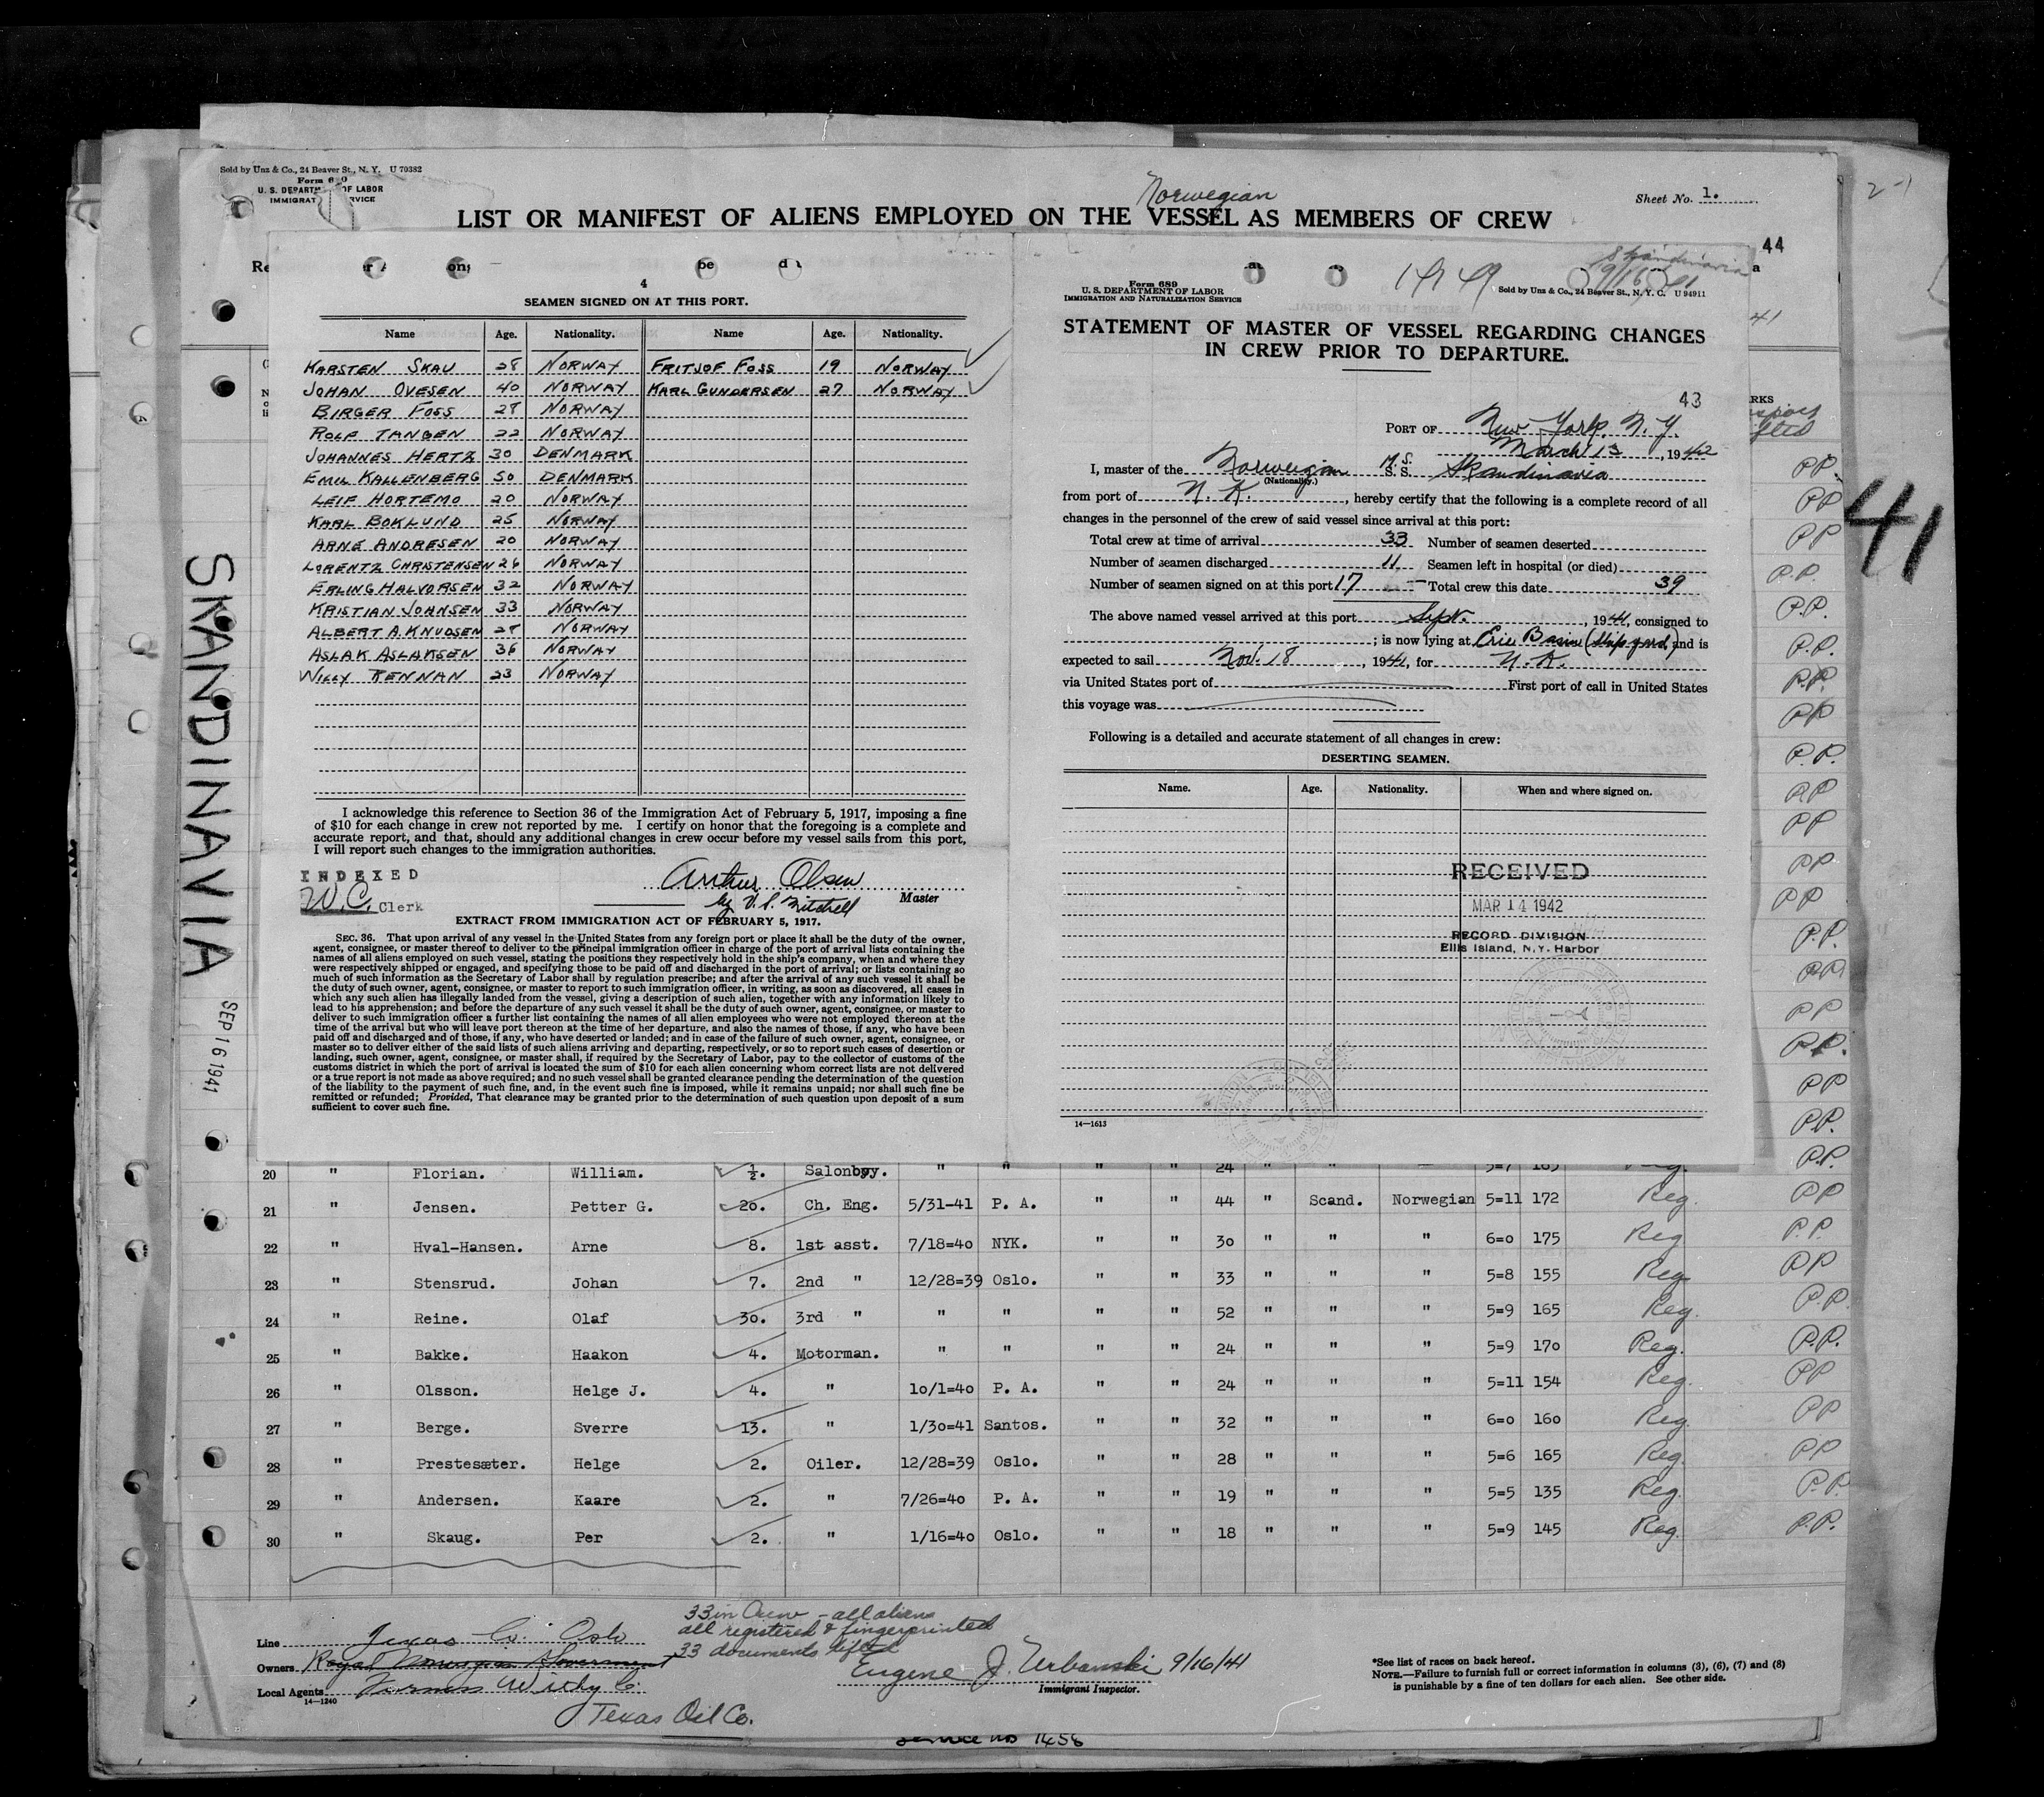 Sold by Unz & Co., 24 Beaver St., N. Y. U 70382
Form 6 0
U. S. DEPARTM OF LABOR
IMMIGRAT RVICE
Norwegian
Sheet No. 1.
LIST OR MANIFEST OF ALIENS EMPLOYED ON THE VESSEL AS MEMBERS OF CREW
44
4
SEAMEN SIGNED ON AT THIS PORT.
Name Age. Nationality. Name Age. Nationality.
KARSTEN SKAU 28 NORWAY FRITJOF FOSS 19 NORWAY
JOHAN OVESEN 40 NORWAY KARL GUNDERSEN 27 NORWAY
BIRGER FOSS 28 NORWAY
ROLF TANGEN 22 NORWAY
JOHANNES HERTZ 30 DENMARK
EMIL KALLENBERG 50 DENMARK
LEIF HORTEMO 20 NORWAY
KARL BOKLUND 25 NORWAY
ARNE ANDRESEN 20 NORWAY
LORENTZ CHRISTENSEN 26 NORWAY
ERLING HALVORSEN 32 NORWAY
KRISTIAN JOHNSEN 33 NORWAY
ALBERT A. KNUDSEN 28 NORWAY
ASLAK ASLAKSEN 36 NORWAY
WILLY RENNAN 23 NORWAY
I acknowledge this reference to Section 36 of the Immigration Act of February 5, 1917, imposing a fine
of $10 for each change in crew not reported by me. I certify on honor that the foregoing is a complete and
accurate report, and that, should any additional changes in crew occur before my vessel sails from this port,
I will report such changes to the immigration authorities.
INDEXED
W.C. Clerk
Arthur Olsen
by V. S. Mitchell Master
EXTRACT FROM IMMIGRATION ACT OF FEBRUARY 5, 1917.
SEC. 36. That upon arrival of any vessel in the United States from any foreign port or place it shall be the duty of the owner,
agent, consignee, or master thereof to deliver to the principal immigration officer in charge of the port of arrival lists containing the
names of all aliens employed on such vessel, stating the positions they respectively hold in the ship's company, when and where they
were respectively shipped or engaged, and specifying those to be paid off and discharged in the port of arrival; or lists containing so
much of such information as the Secretary of Labor shall by regulation prescribe; and after the arrival of any such vessel it shall be
the duty of such owner, agent, consignee, or master to report to such immigration officer, in writing, as soon as discovered, all cases in
which any such alien has illegally landed from the vessel, giving a description of such alien, together with any information likely to
lead to his apprehension; and before the departure of any such vessel it shall be the duty of such owner, agent, consignee, or master to
deliver to such immigration officer a further list containing the names of all alien employees who were not employed thereon at the
time of the arrival but who will leave port thereon at the time of her departure, and also the names of those, if any, who have been
paid off and discharged and of those, if any, who have deserted or landed; and in case of the failure of such owner, agent, consignee, or
master so to deliver either of the said lists of such aliens arriving and departing, respectively, or so to report such cases of desertion or
landing, such owner, agent, consignee, or master shall, if required by the Secretary of Labor, pay to the collector of customs of the
customs district in which the port of arrival is located the sum of $10 for each alien concerning whom correct lists are not delivered
or a true report is not made as above required; and no such vessel shall be granted clearance pending the determination of the question
of the liability to the payment of such fine, and, in the event such fine is imposed, while it remains unpaid; nor shall such fine be
remitted or refunded; Provided, That clearance may be granted prior to the determination of such question upon deposit of a sum
sufficient to cover such fine.
Skandinavia
9/16/41
Form 689
U. S. DEPARTMENT OF LABOR
IMMIGRATION AND NATURALIZATION SERVICE
Sold by Unz & Co., 24 Beaver St., N. Y. C. U 94911
STATEMENT OF MASTER OF VESSEL REGARDING CHANGES
IN CREW PRIOR TO DEPARTURE.
43
PORT OF New York, N. Y.
March 13, 1942
I, master of the Norwegian M. S. S. S. Skandinavia
(Nationality.)
from port of U. K., hereby certify that the following is a complete record of all
changes in the personnel of the crew of said vessel since arrival at this port:
Total crew at time of arrival 33 Number of seamen deserted
Number of seamen discharged 11 Seamen left in hospital (or died)
Number of seamen signed on at this port 17 Total crew this date 39
The above named vessel arrived at this port Sept., 1941, consigned to
; is now lying at Erie Basin (ship yard) and is
expected to sail Nov. 18, 1941, for U. K.
via United States port of First port of call in United States
this voyage was
Following is a detailed and accurate statement of all changes in crew:
DESERTING SEAMEN.
Name. Age. Nationality. When and where signed on.
RECEIVED
MAR 14 1942
RECORD DIVISION
Ellis Island, N.Y. Harbor
14—1613
SKANDINAVIA
SEP 16 1941
41
20 " Florian. William. ½. Salonboy. " " " " 24 " "
21 " Jensen. Petter G. 20. Ch. Eng. 5/31-41 P. A. " " 44 " Scand. Norwegian 5=11 172 Reg. PP
22 " Hval-Hansen. Arne 8. 1st asst. 7/18=40 NYK. " " 30 " " " 6=0 175 Reg P.P.
23 " Stensrud. Johan 7. 2nd " 12/28=39 Oslo. " " 33 " " " 5=8 155 Reg PP
24 " Reine. Olaf 30. 3rd " " " " " 52 " " " 5=9 165 Reg. P.P.
25 " Bakke. Haakon 4. Motorman. " " " " 24 " " " 5=9 170 Reg. P.P.
26 " Olsson. Helge J. 4. " 10/1=40 P. A. " " 24 " " " 5=11 154 Reg. PP
27 " Berge. Sverre 13. " 1/30=41 Santos. " " 32 " " " 6=0 160 Reg. PP
28 " Prestesæter. Helge 2. Oiler. 12/28=39 Oslo. " " 28 " " " 5=6 165 Reg. PP
29 " Andersen. Kaare 2. " 7/26=40 P. A. " " 19 " " " 5=5 135 Reg. P.P.
30 " Skaug. Per 2. " 1/16=40 Oslo. " " 18 " " " 5=9 145 Reg. P.P.
33 in Crew - all aliens
all registered & fingerprinted
33 documents lifted
Line Texas Co. Oslo
Owners Royal Norwegian Government
Local Agents Furness Withy Co.
14—1240
Texas Oil Co.
Eugene J. Urbanski 9/16/41
Immigrant Inspector.
*See list of races on back hereof.
NOTE.—Failure to furnish full or correct information in columns (3), (6), (7) and (8)
is punishable by a fine of ten dollars for each alien. See other side.
1458